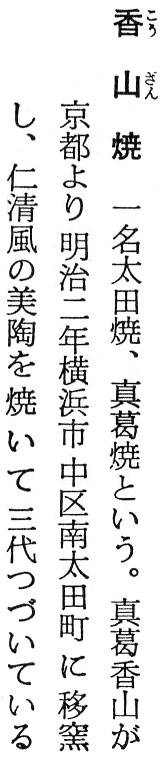 香山焼 一名太田焼、真葛焼という。真葛香山が
京都より明治二年横浜市中区南太田町に移窯
し、仁清風の美陶を焼いて三代つづいている
こうざん